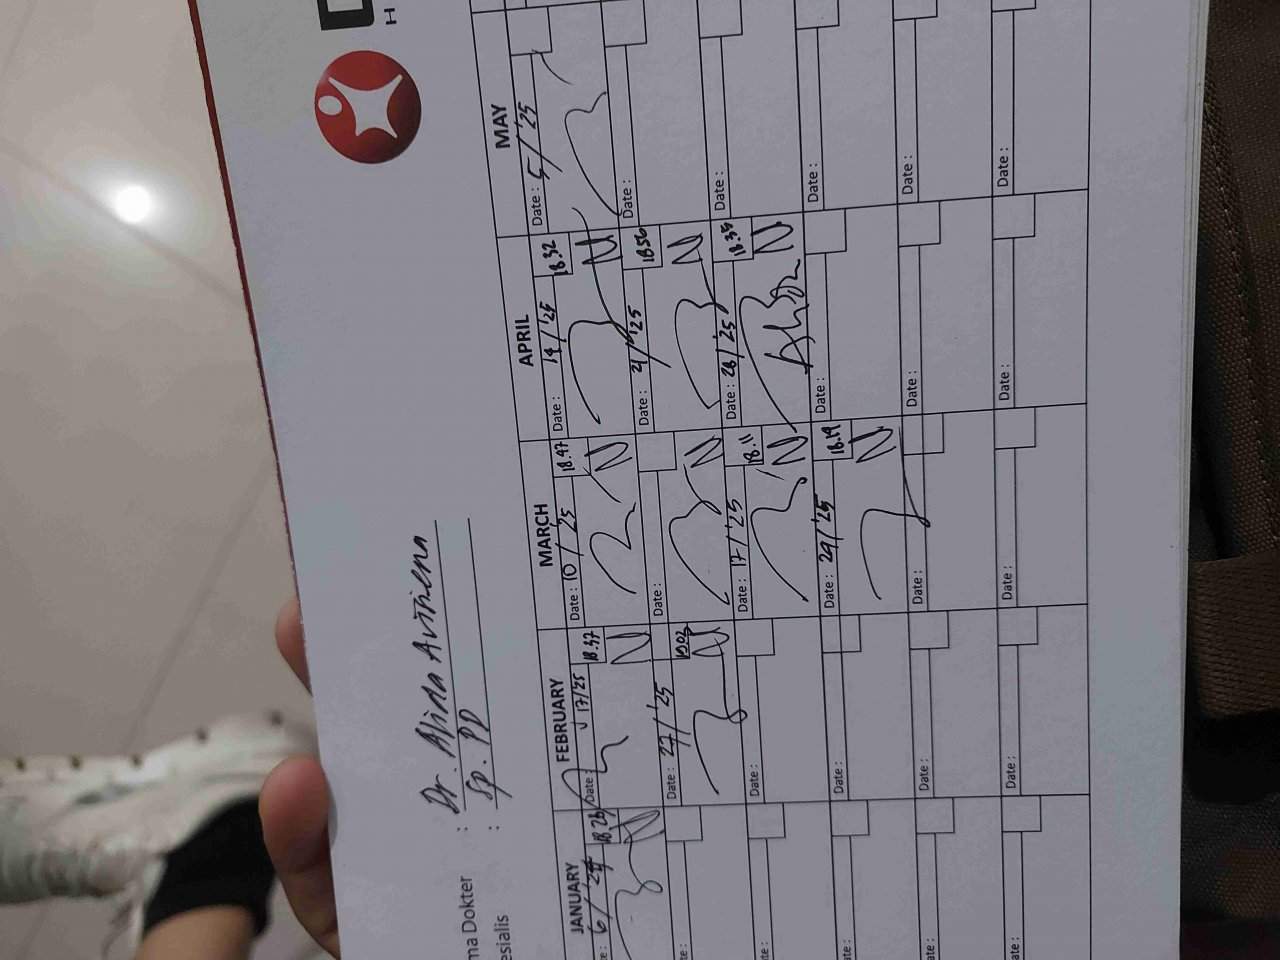 ma Dokter : Dr. Alida Avisiena
esialis : Sp. PD
JANUARY FEBRUARY MARCH APRIL MAY
6/ 18.26
Date : 17/25 18.37
Date : 10/'25 18.47
Date : 14/'25 18.32
Date : 5/'25
Date : 27/'25
Date :
Date : 21/'25 18.56
Date :
Date :
Date : 17/'25 18.11
Date : 28/'25 18.35
Date :
Date :
Date : 24/'25 18.19
Date :
Date :
Date :
Date :
Date :
Date :
Date :
Date :
Date :
Date :